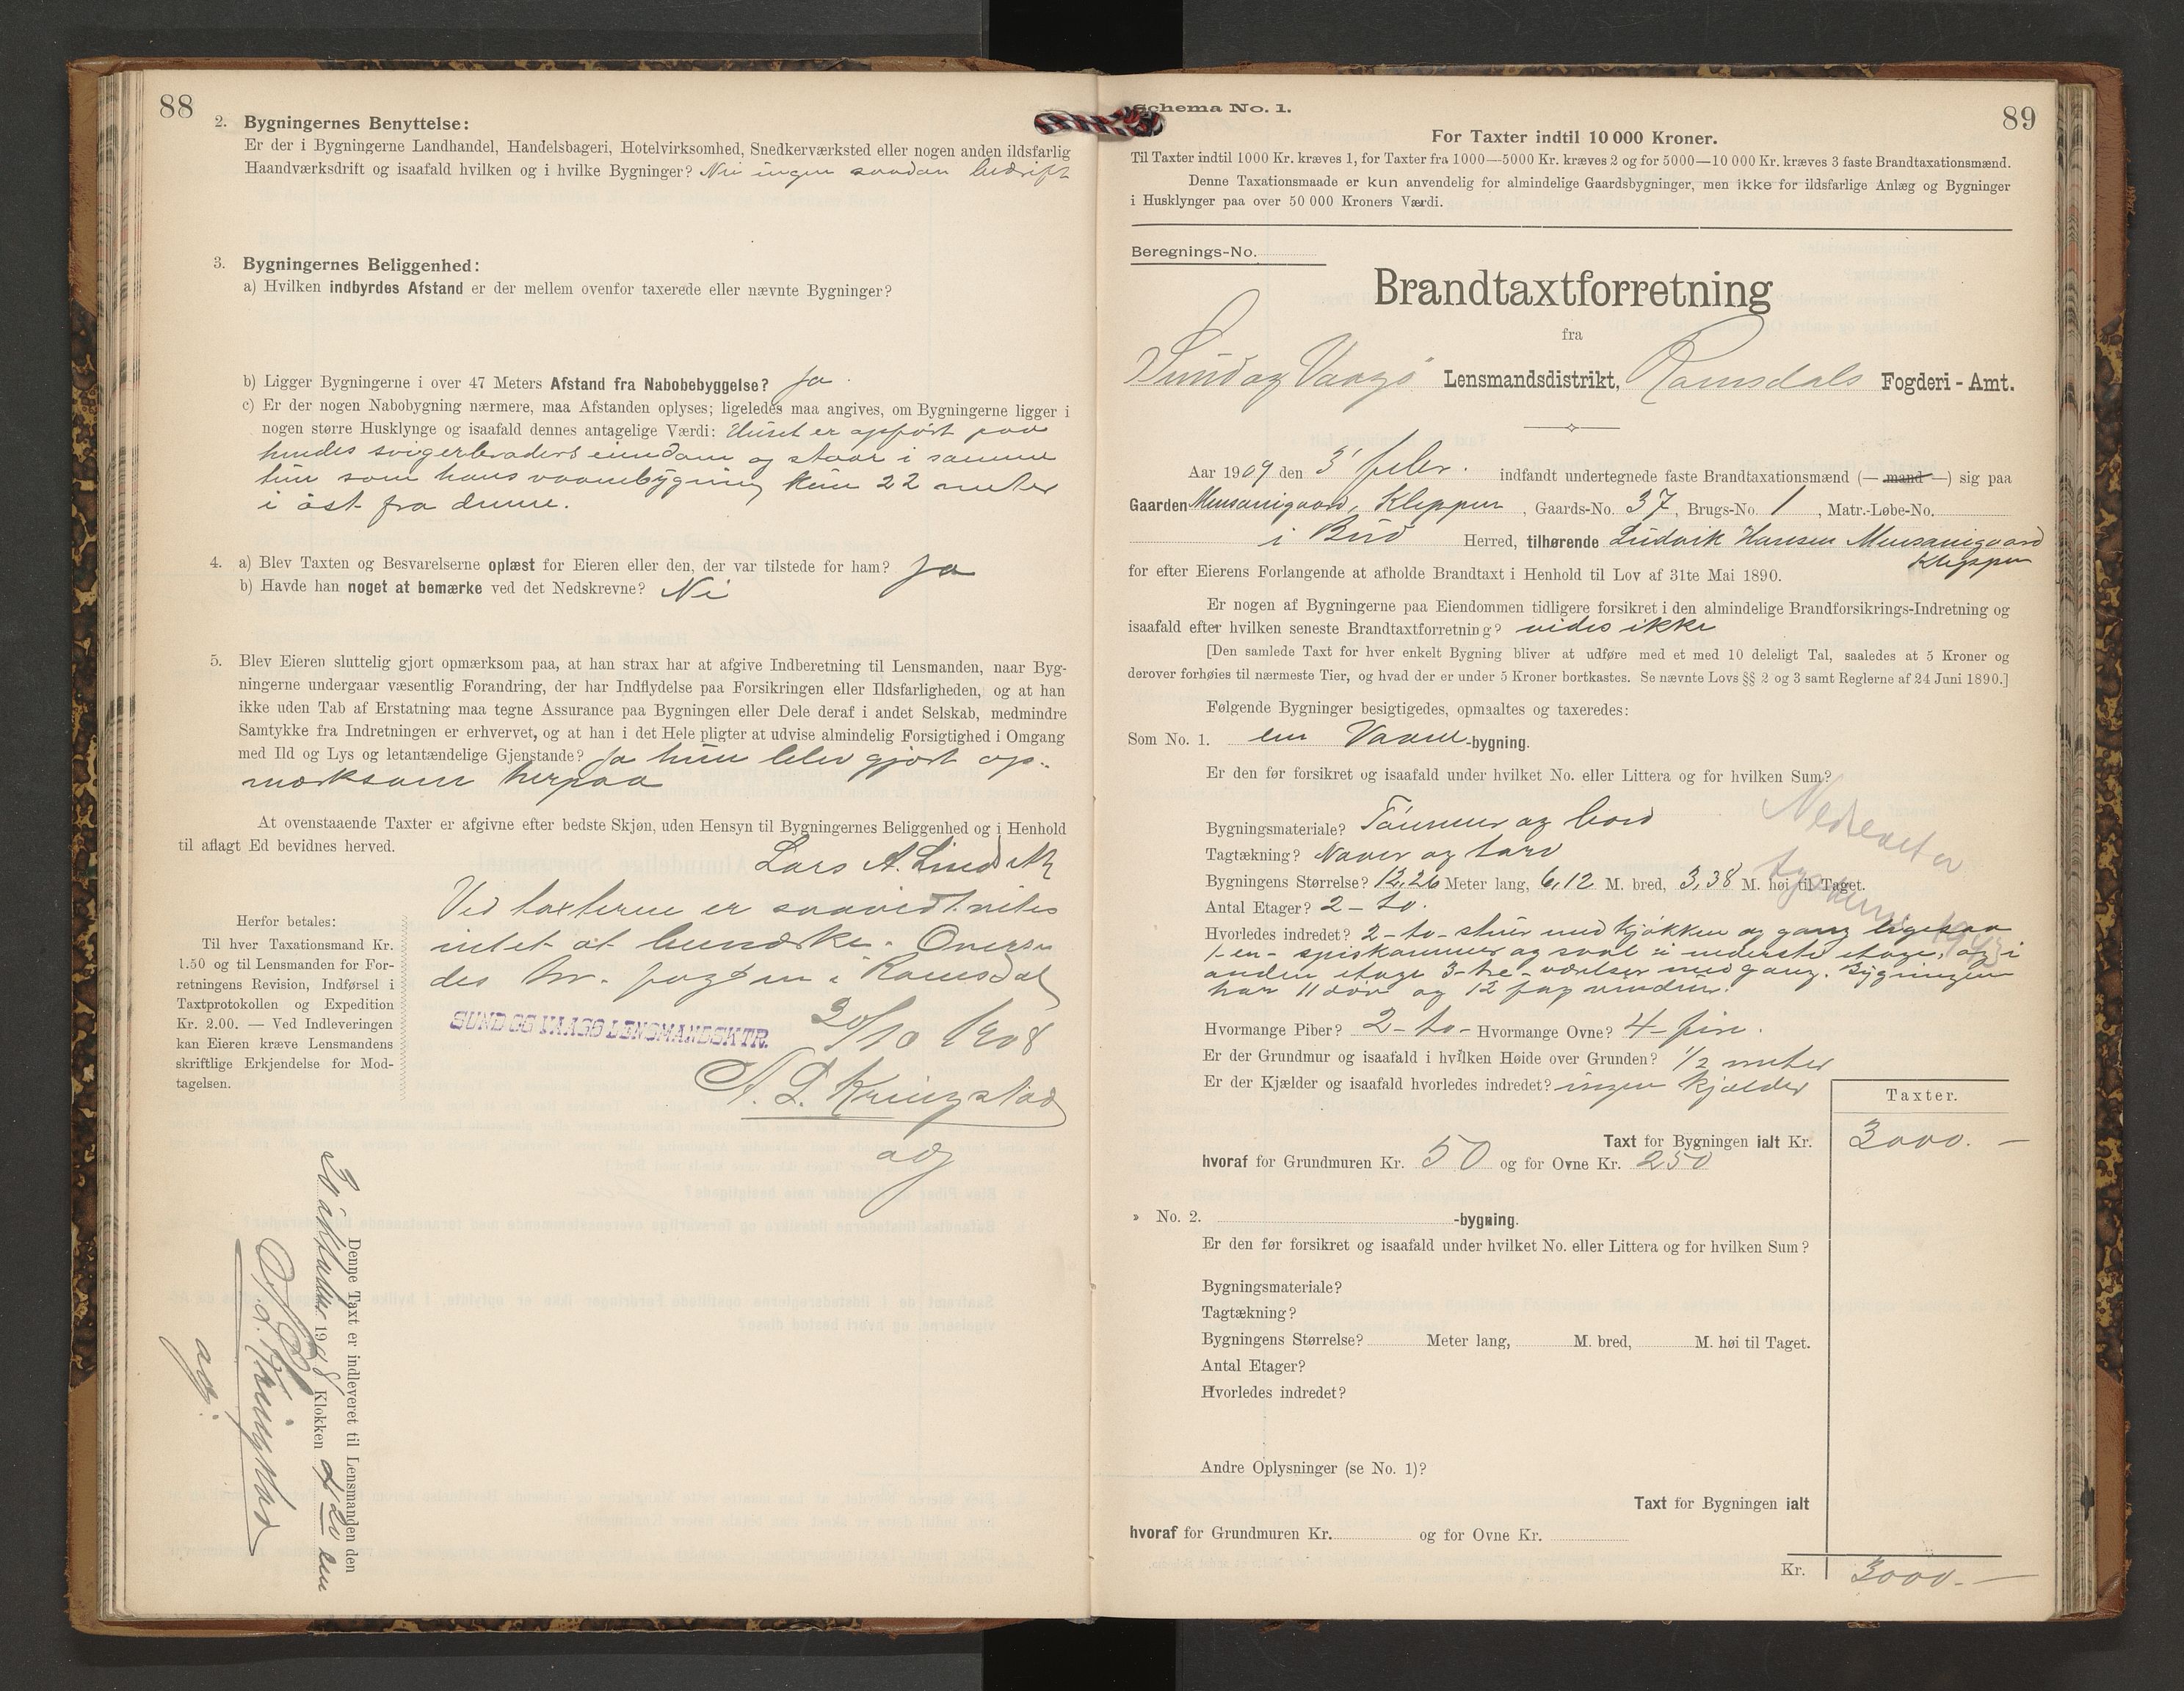 88
2. Bygningernes Benyttelse:
Er der i Bygningerne Landhandel, Handelsbageri, Hotelvirksomhed, Snedkerværksted eller nogen anden ildsfarlig
Haandværksdrift og isaafald hvilken og i hvilke Bygninger? Nei ingen saadan bedrift
3. Bygningernes Beliggenhed:
a) Hvilken indbyrdes Afstand er der mellem ovenfor taxerede eller nævnte Bygninger?
b) Ligger Bygningerne i over 47 Meters Afstand fra Nabobebyggelse? Ja.
c) Er der nogen Nabobygning nærmere, maa Afstanden oplyses; ligeledes maa angives, om Bygningerne ligger i
nogen større Husklynge og isaafald dennes antagelige Værdi: Huset er opført paa
hendes svigerbroders eiendom og staar i samme
tun som hans vaanebygning kun 22 meter
i øst fra denne.
4. a) Blev Taxten og Besvarelserne oplæst for Eieren eller den, der var tilstede for ham? Ja
b) Havde han noget at bemærke ved det Nedskrevne? Nei
5. Blev Eieren sluttelig gjort opmærksom paa, at han strax har at afgive Indberetning til Lensmanden, naar Byg-
ningerne undergaar væsentlig Forandring, der har Indflydelse paa Forsikringen eller Ildsfarligheden, og at han
ikke uden Tab af Erstatning maa tegne Assurance paa Bygningen eller Dele deraf i andet Selskab, medmindre
Samtykke fra Indretningen er erhvervet, og at han i det Hele pligter at udvise almindelig Forsigtighed i Omgang
med Ild og Lys og letantændelige Gjenstande? Ja hun blev gjort op-
mærksom herpaa
At ovenstaaende Taxter er afgivne efter bedste Skjøn, uden Hensyn til Bygningernes Beliggenhed og i Henhold
til aflagt Ed bevidnes herved.
Lars A.
Ved taxterne er saavidt vites
intet at bemærke. Oversen
des hr. fogden i Romsdal
SUND OG VAAGØ LENSMANDSKTR.
20/10 1908
A. L. Kringstad
Herfor betales:
Til hver Taxationsmand Kr.
1.50 og til Lensmanden for For-
retningens Revision, Indførsel i
Taxtprotokollen og Expedition
Kr. 2.00. — Ved Indleveringen
kan Eieren kræve Lensmandens
skriftlige Erkjendelse for Mod-
tagelsen.
Denne Taxt er indleveret til Lensmanden den
20 oktober 1908 Klokken
Kringstad
89
Schema No. 1.
For Taxter indtil 10 000 Kroner.
Til Taxter indtil 1000 Kr. kræves 1, for Taxter fra 1000—5000 Kr. kræves 2 og for 5000—10 000 Kr. kræves 3 faste Brandtaxationsmænd.
Denne Taxationsmaade er kun anvendelig for almindelige Gaardsbygninger, men ikke for ildsfarlige Anlæg og Bygninger
i Husklynger paa over 50 000 Kroners Værdi.
Beregnings-No.
Brandtaxtforretning
fra
Sund og Vaagø Lensmandsdistrikt, Romsdals Fogderi - Amt.
Aar 1909 den 3 febr. indfandt undertegnede faste Brandtaxationsmænd (— mand —) sig paa
Gaarden Kleppen, Gaards-No. 37, Brugs-No. 1, Matr.-Løbe-No.
i Bud Herred, tilhørende Ludvik Hansen
Kleppen
for efter Eierens Forlangende at afholde Brandtaxt i Henhold til Lov af 31te Mai 1890.
Er nogen af Bygningerne paa Eiendommen tidligere forsikret i den almindelige Brandforsikrings-Indretning og
isaafald efter hvilken seneste Brandtaxtforretning? vides ikke
[Den samlede Taxt for hver enkelt Bygning bliver at udføre med et med 10 deleligt Tal, saaledes at 5 Kroner og
derover forhøies til nærmeste Tier, og hvad der er under 5 Kroner bortkastes. Se nævnte Lovs §§ 2 og 3 samt Reglerne af 24 Juni 1890.]
Følgende Bygninger besigtigedes, opmaaltes og taxeredes:
Som No. 1. en Vaane-bygning.
Er den før forsikret og isaafald under hvilket No. eller Littera og for hvilken Sum?
Nedrevet av
tyskerne 1943
Bygningsmateriale? Tømmer og bord
Tagtækning? Næver og tørv
Bygningens Størrelse? 12,26 Meter lang, 6,12 M. bred, 3,38 M. høi til Taget.
Antal Etager? 2 - to.
Hvorledes indredet? 2 - to - stuer med kjøkken og gang ligesaa
1 - en - spiskammer og sval i underste etage, og i
anden etage 3 - tre - værelser med gang. Bygningen
har 11 dør og 12 fag vinduer.
Hvormange Piber? 2 - to - Hvormange Ovne? 4 - fire.
Er der Grundmur og isaafald i hvilken Høide over Grunden? 1/2 meter
Er der Kjælder og isaafald hvorledes indredet? ingen kjælder
Taxter.
Taxt for Bygningen ialt Kr. 3000. —
hvoraf for Grundmuren Kr. 50 og for Ovne Kr. 250
» No. 2. -bygning.
Er den før forsikret og isaafald under hvilket No. eller Littera og for hvilken Sum?
Bygningsmateriale?
Tagtækning?
Bygningens Størrelse? Meter lang, M. bred, M. høi til Taget.
Antal Etager?
Hvorledes indredet?
Andre Oplysninger (se No. 1)?
Taxt for Bygningen ialt
hvoraf for Grundmuren Kr. og for Ovne Kr.
Kr. 3000. —